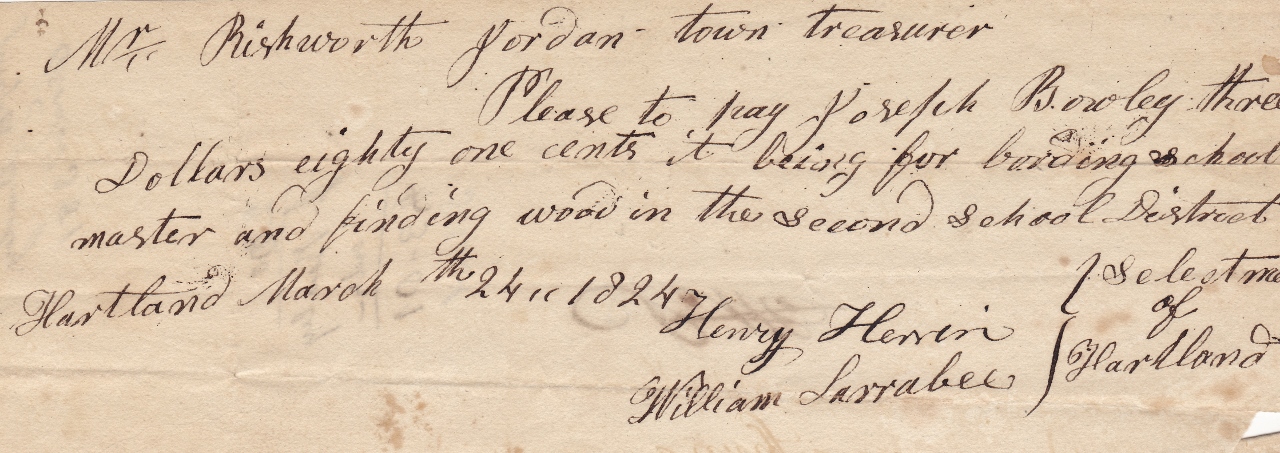 Mr. Rishworth Jordan town treasurer
Please to pay Joseph Bowley thre
Dollars eighty one cents it being for bording school
master and finding wood in the second school District
Hartland March th 24 1824
Henry Herrin
William Larrabee
Selectme
of
Hartland